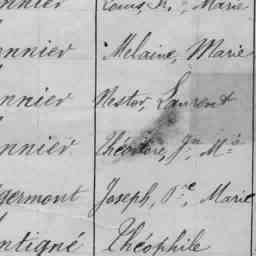 nnier Louis, Fr.s, Marie
nnier Melaine, Marie
nnier Nestor, Laurent
nnier Théodore, Jn, Mie
germont Joseph, Pre, Marie
ntigné Théophile